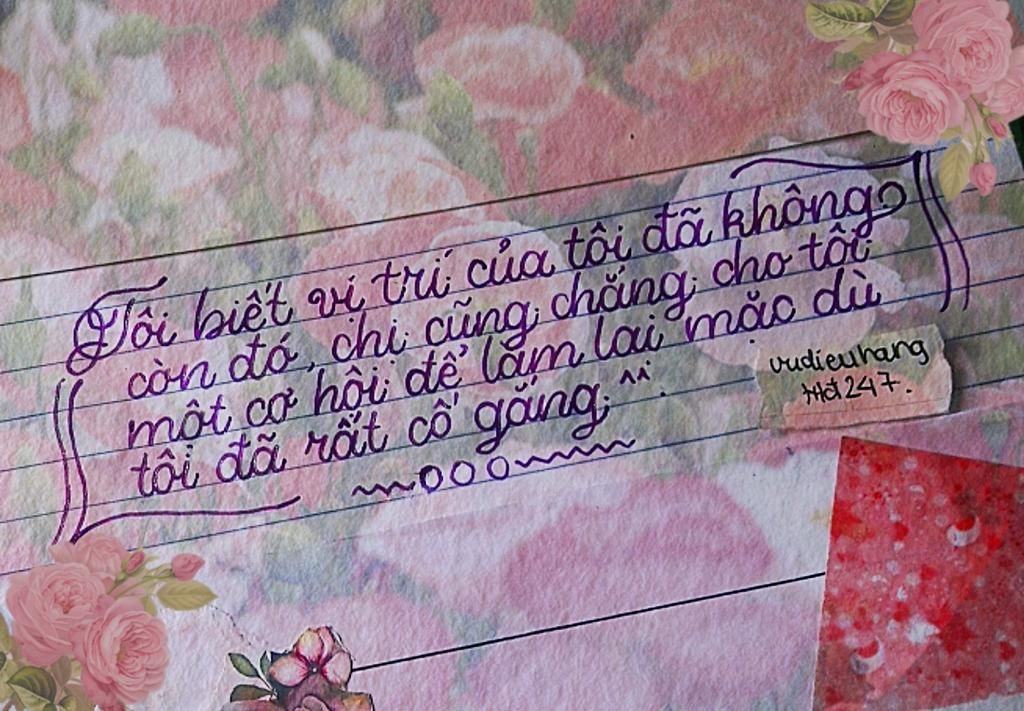 Tôi biết vị trí của tôi đã không
còn đó, chị cũng chẳng cho tôi
một cơ hội để làm lại mặc dù
tôi đã rất cố gắng ^^.
vudieuhang